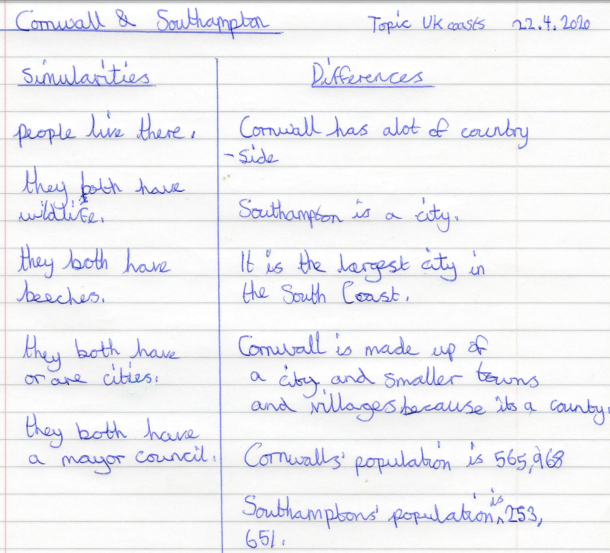 Cornwall & Southampton
Topic UK coasts 22.4.2020
Simularities
people live there.
they both have
wildlife.
they both have
beeches.
they both have
or are cities.
they both have
a mayor council.
Differences
Cornwall has alot of country
-side
Southampton is a city.
It is the largest city in
the South Coast.
Cornwall is made up of
a city and smaller towns
and villages because its a county.
Cornwalls' population is 565,968
Southamptons' population is 253,
651.